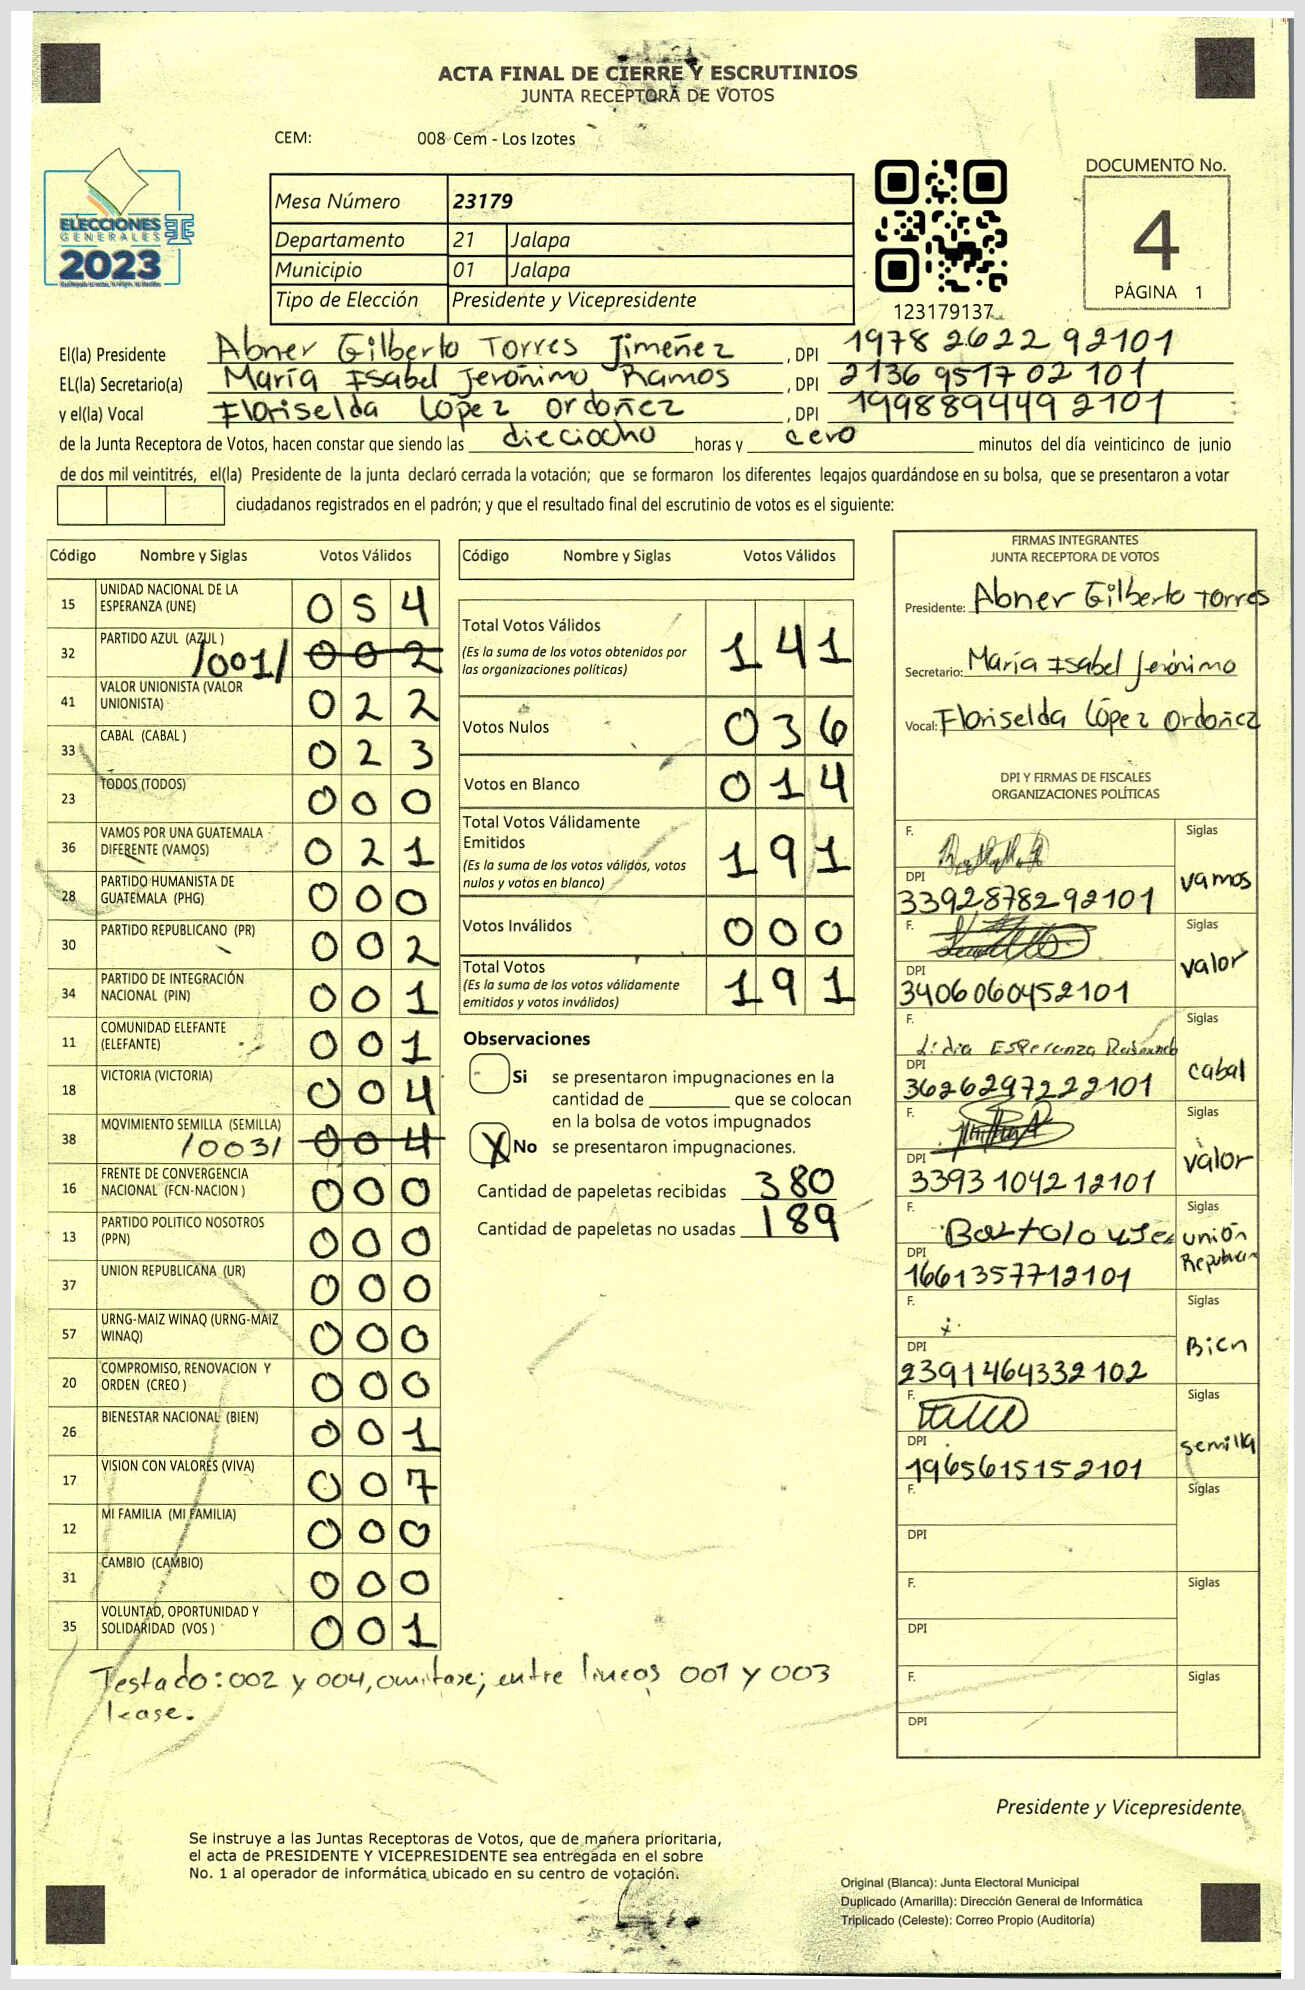 ACTA FINAL DE CIERRE Y ESCRUTINIOS
JUNTA RECEPTORA DE VOTOS
CEM: 008 Cem - Los Izotes
ELECCIONES
GENERALES
2023
Mesa Número 23179
Departamento 21 Jalapa
Municipio 01 Jalapa
Tipo de Elección Presidente y Vicepresidente
123179137
DOCUMENTO No.
4
PÁGINA 1
El(la) Presidente Abner Gilberto Torres Jimeñez , DPI 1978 2622 92101
EL(la) Secretario(a) María Isabel Jerónimo Ramos , DPI 2136 9517 02 101
y el(la) Vocal Floriselda López Ordoñez , DPI 1998894492101
de la Junta Receptora de Votos, hacen constar que siendo las dieciocho horas y cero minutos del día veinticinco de junio
de dos mil veintitrés, el(la) Presidente de la junta declaró cerrada la votación; que se formaron los diferentes legajos guardándose en su bolsa, que se presentaron a votar
ciudadanos registrados en el padrón; y que el resultado final del escrutinio de votos es el siguiente:
Código Nombre y Siglas Votos Válidos
15 UNIDAD NACIONAL DE LA ESPERANZA (UNE) 054
32 PARTIDO AZUL (AZUL ) /001/ 002
41 VALOR UNIONISTA (VALOR UNIONISTA) 022
33 CABAL (CABAL ) 023
23 TODOS (TODOS) 000
36 VAMOS POR UNA GUATEMALA DIFERENTE (VAMOS) 021
28 PARTIDO HUMANISTA DE GUATEMALA (PHG) 000
30 PARTIDO REPUBLICANO (PR) 002
34 PARTIDO DE INTEGRACIÓN NACIONAL (PIN) 001
11 COMUNIDAD ELEFANTE (ELEFANTE) 001
18 VICTORIA (VICTORIA) 004
38 MOVIMIENTO SEMILLA (SEMILLA) /003/ 004
16 FRENTE DE CONVERGENCIA NACIONAL (FCN-NACION ) 000
13 PARTIDO POLITICO NOSOTROS (PPN) 000
37 UNION REPUBLICANA (UR) 000
57 URNG-MAIZ WINAQ (URNG-MAIZ WINAQ) 000
20 COMPROMISO, RENOVACION Y ORDEN (CREO ) 000
26 BIENESTAR NACIONAL (BIEN) 001
17 VISION CON VALORES (VIVA) 007
12 MI FAMILIA (MI FAMILIA) 000
31 CAMBIO (CAMBIO) 000
35 VOLUNTAD, OPORTUNIDAD Y SOLIDARIDAD (VOS ) 001
Testado: 002 y 004, omitase; entre lineas 001 y 003
lease.
Código Nombre y Siglas Votos Válidos
Total Votos Válidos 141
(Es la suma de los votos obtenidos por
las organizaciones políticas)
Votos Nulos 036
Votos en Blanco 014
Total Votos Válidamente
Emitidos 191
(Es la suma de los votos válidos, votos
nulos y votos en blanco)
Votos Inválidos 000
Total Votos 191
(Es la suma de los votos válidamente
emitidos y votos inválidos)
Observaciones
Si se presentaron impugnaciones en la
cantidad de ________ que se colocan
en la bolsa de votos impugnados
X No se presentaron impugnaciones.
Cantidad de papeletas recibidas 380
Cantidad de papeletas no usadas 189
FIRMAS INTEGRANTES
JUNTA RECEPTORA DE VOTOS
Presidente: Abner Gilberto Torres
Secretario: María Isabel Jerónimo
Vocal: Floriselda López Ordoñez
DPI Y FIRMAS DE FISCALES
ORGANIZACIONES POLÍTICAS
F. Siglas
DPI vamos
3392878292101
F. Siglas
DPI valor
3406060452101
F. Lidia Esperanza Siglas
DPI cabal
3626297222101
F. Siglas
DPI valor
3393104212101
F. Bartolo Siglas
DPI unión
1661357712101
F. Siglas
DPI Bien
2391464332102
F. Siglas
DPI semilla
1965615152101
F. Siglas
DPI
F. Siglas
DPI
F. Siglas
DPI
Presidente y Vicepresidente
Se instruye a las Juntas Receptoras de Votos, que de manera prioritaria,
el acta de PRESIDENTE Y VICEPRESIDENTE sea entregada en el sobre
No. 1 al operador de informática ubicado en su centro de votación.
Original (Blanca): Junta Electoral Municipal
Duplicado (Amarilla): Dirección General de Informática
Triplicado (Celeste): Correo Propio (Auditoría)